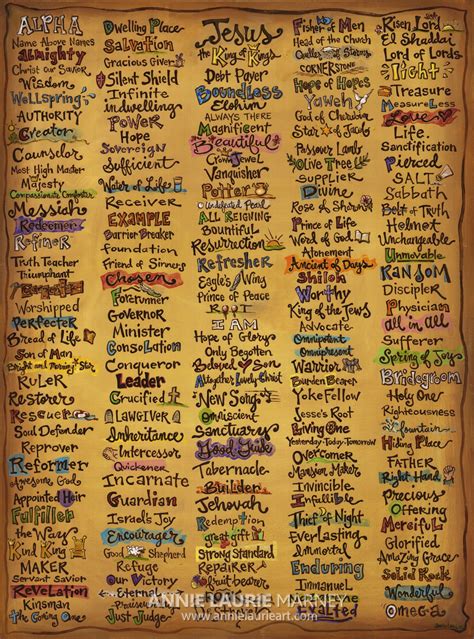 ALPHA
Name Above Names
ALMIGHTY
Christ our Savior
Wisdom
Wellspring
AUTHORITY
Creator
Counselor
Most High Master
Majesty
Compassionate Comforter
Messiah
Redeemer
Refiner
Truth Teacher
Triumphant
Worshipped
Perfecter
Bread of Life
Son of Man
Bright and Morning Star
RuLeR
Restorer
Rescuer
Soul Defender
Reprover
Reformer
Awesome God
Appointed Heir
Fulfiller
the Way
Kind King
MAKER
Servant Savior
Revelation
Kinsman
the Coming One
Dwelling Place
Salvation
Gracious Giver
Silent Shield
Infinite
indwelling
Power
Hope
Sovereign
Sufficient
Water of Life
Receiver
EXAMPLE
Barrier Breaker
foundation
Friend of Sinners
Chosen
Forerunner
Governor
Minister
Consolation
Conqueror
Leader
Crucified
LAWGIVER
Inheritance
Intercessor
Quickener
Incarnate
Guardian
Israel's Joy
Encourager
Good Shepherd
Refuge
Our Victory
Eternal
Just Judge
Jesus
the King of Kings
Debt Payer
Boundless
Elohim
ALWAYS THERE
Magnificent
Beautiful
Crown Jewel
Vanquisher
Potter
Undefeated
ALL REIGNING
Bountiful
Resurrection
Refresher
Eagle's Wing
Prince of Peace
ROOT
I AM
Hope of Glory
Only Begotten
Beloved Son
Altogether Lovely Christ
New Song
Omniscient
Sanctuary
Good Guide
Tabernacle
Builder
Jehovah
Redemption
great gift
Strong Standard
Repairer
Fruit-bearer
Fisher of Men
Head of the Church
CORNERSTONE
Hope of Hopes
Yaweh
God of Cherubim
Star of Jacob
Passover Lamb
Olive Tree
Supplier
Divine
Rose of Sharon
Prince of Life
Word of God
Atonement
Ancient of Days
Shiloh
Worthy
King of the Jews
Advocate
Omnipotent
Omnipresent
Warrior
Burden Bearer
Yoke Fellow
Jesse's Root
Living One
Yesterday-Today-Tomorrow
Overcomer
Mansion Maker
Invincible
Infallible
Thief of Night
Everlasting
Immortal
Enduring
Immanuel
Exalted
Risen Lord
El Shaddai
Lord of Lords
Light
Treasure
Measureless
Love
Life.
Sanctification
Pierced
SALT
Sabbath
Belt of Truth
Holmet
Unchangeable
Unmovable
RANSOM
Discipler
Physician
all in all
Sufferer
Spring of Joys
Bridegroom
Holy One
Righteousness
Fountain
Hiding Place
FATHER
Right Hand
Precious
Offering
Merciful
Glorified
Amazing Grace
Solid Rock
Wonderful
Omega
ANNIE LAURIE MARNEY
www.annielaurieart.com